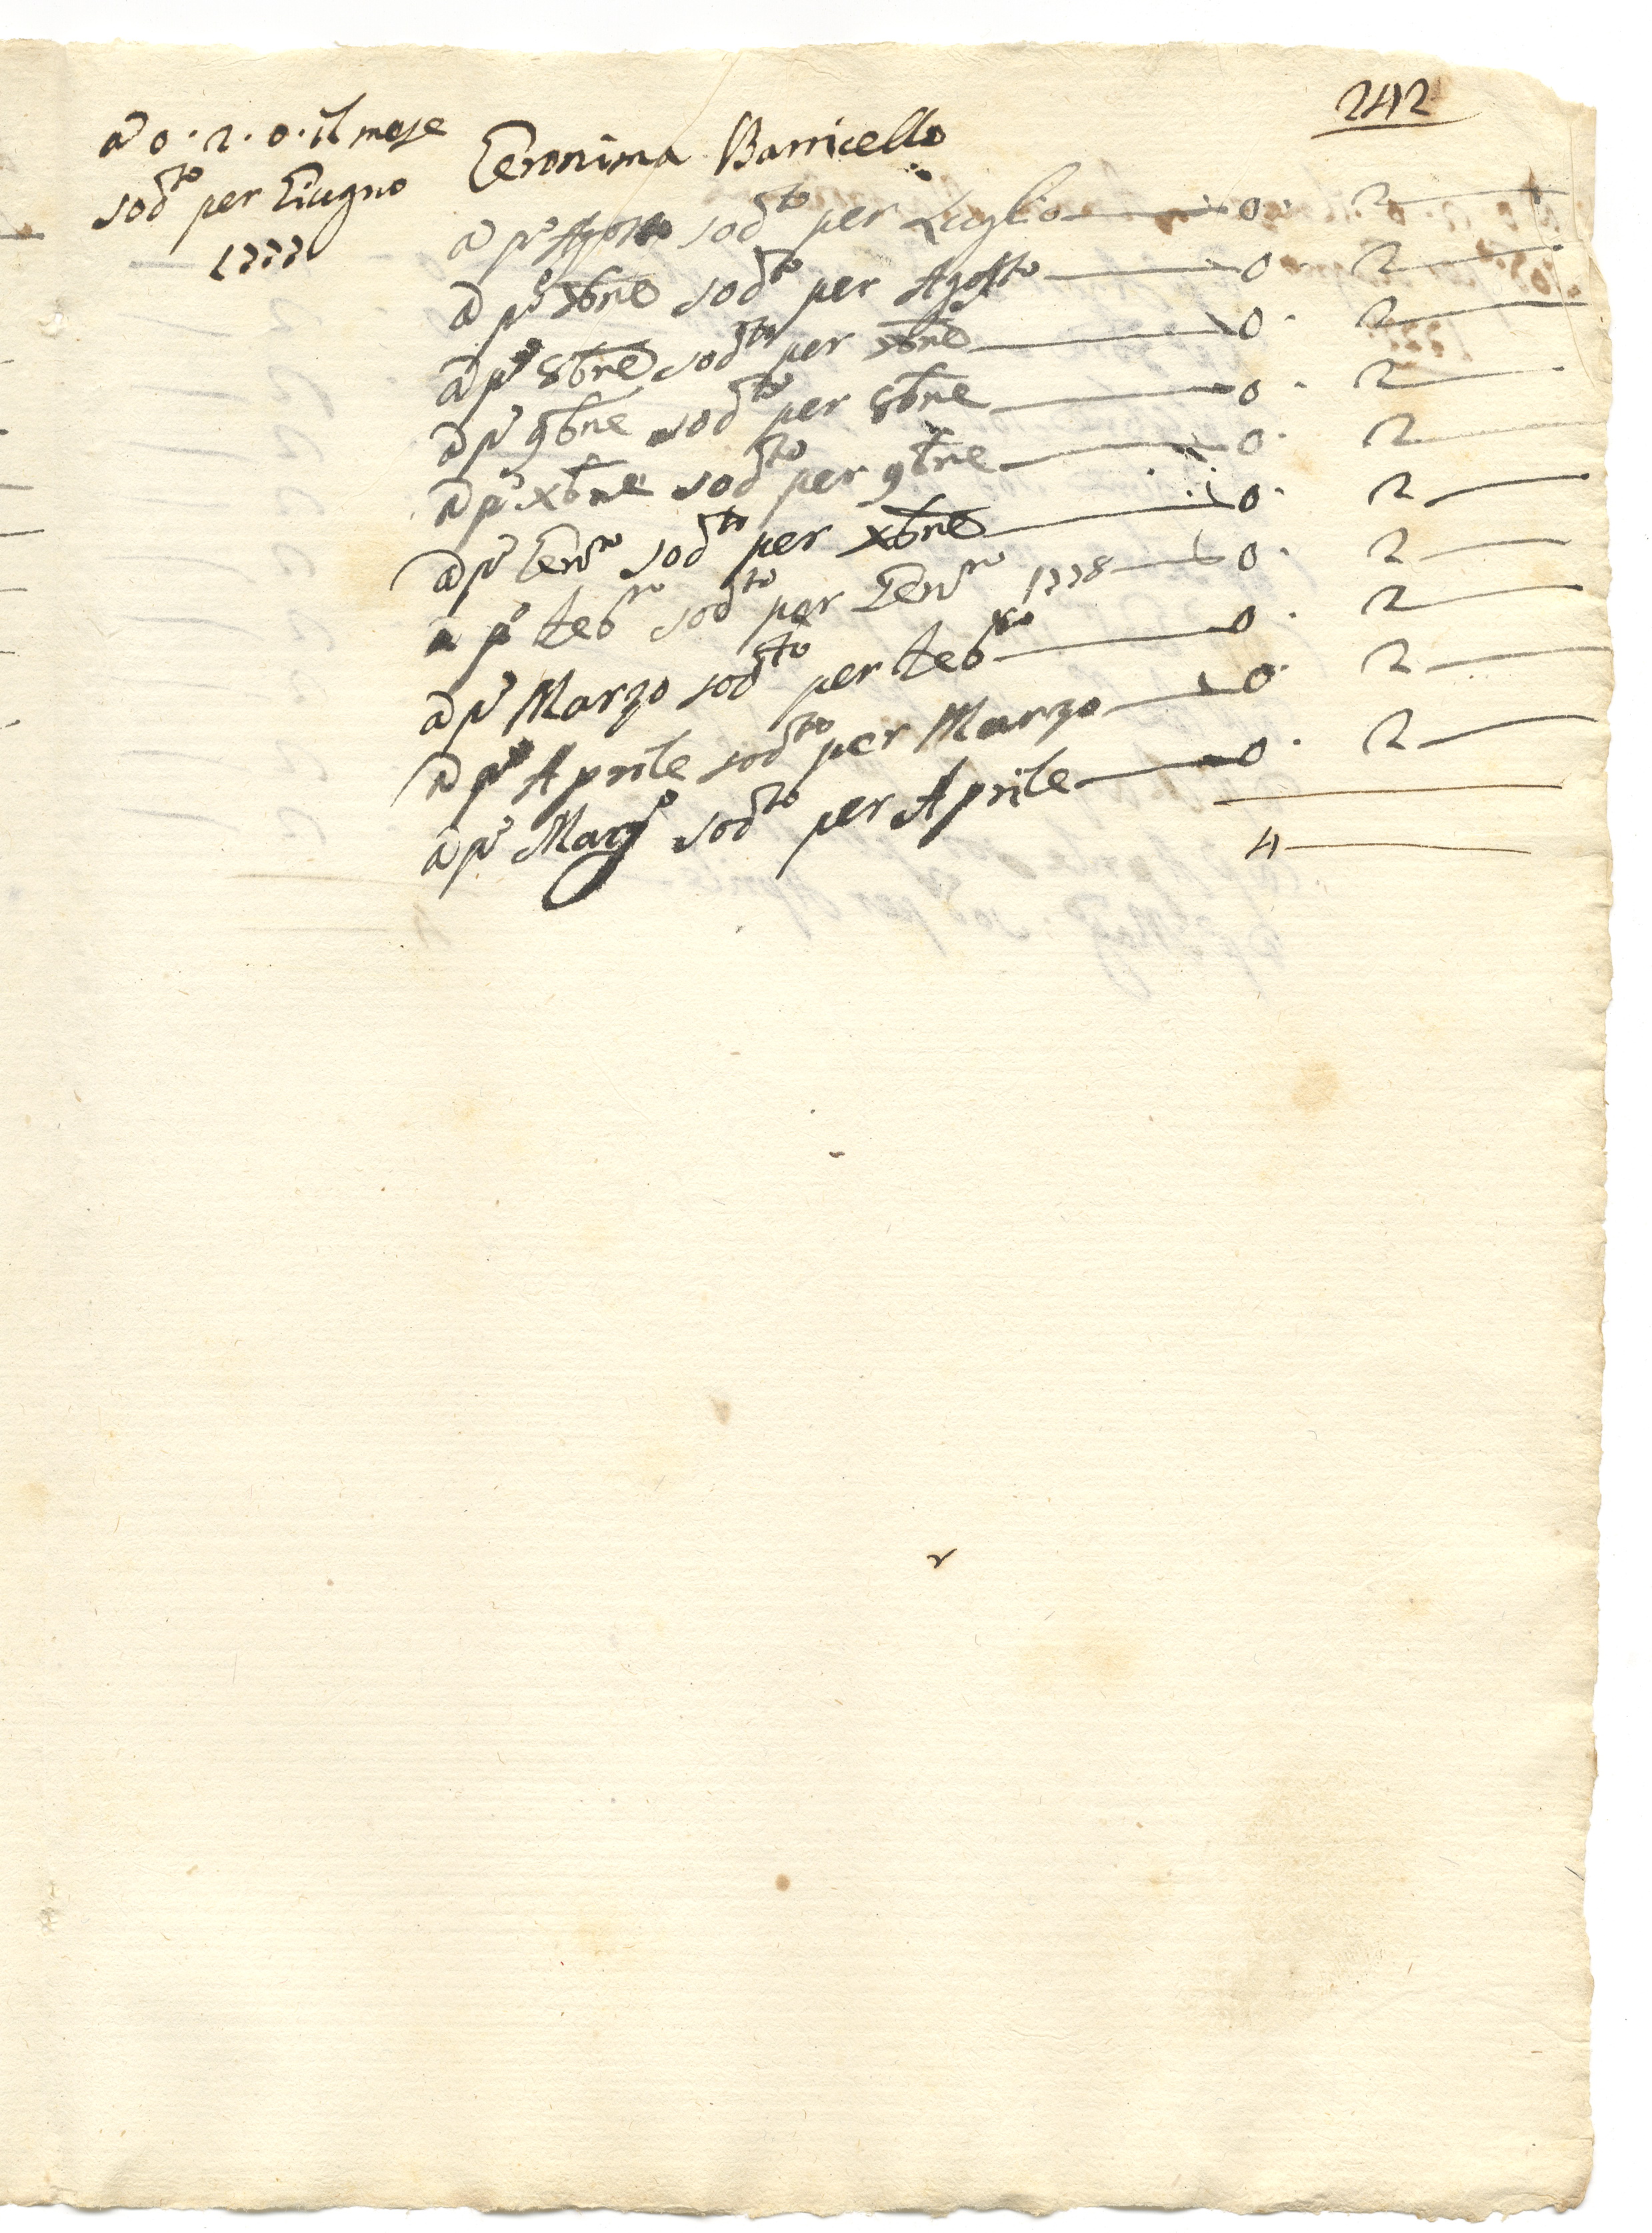 242
a 0.2.0. il mese
sodto per Giugno
1777
Geronima Barricello
a po Agosto sodto per Luglio 0. 2
a po 7bre sodto per Agosto 0. 2
a po 8bre sodto per 7bre 0. 2
a po 9bre sodto per 8bre 0. 2
a po Xbre sodto per 9bre 0. 2
a po Genro sodto per Xbre 0. 2
a po Febro sodto per Genro 1778 0. 2
a po Marzo sodto per Febro 0. 2
a po Aprile sodto per Marzo 0. 2
a po Maggo sodto per Aprile 0. 2
4